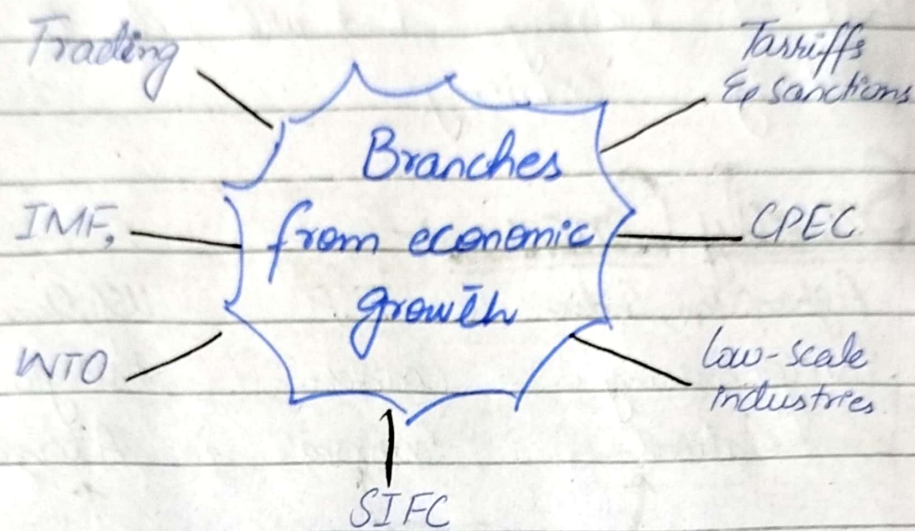 Trading
Tarriffs
& sanctions
Branches
from economic
growth
IMF,
CPEC
WTO
low-scale
industries
SIFC